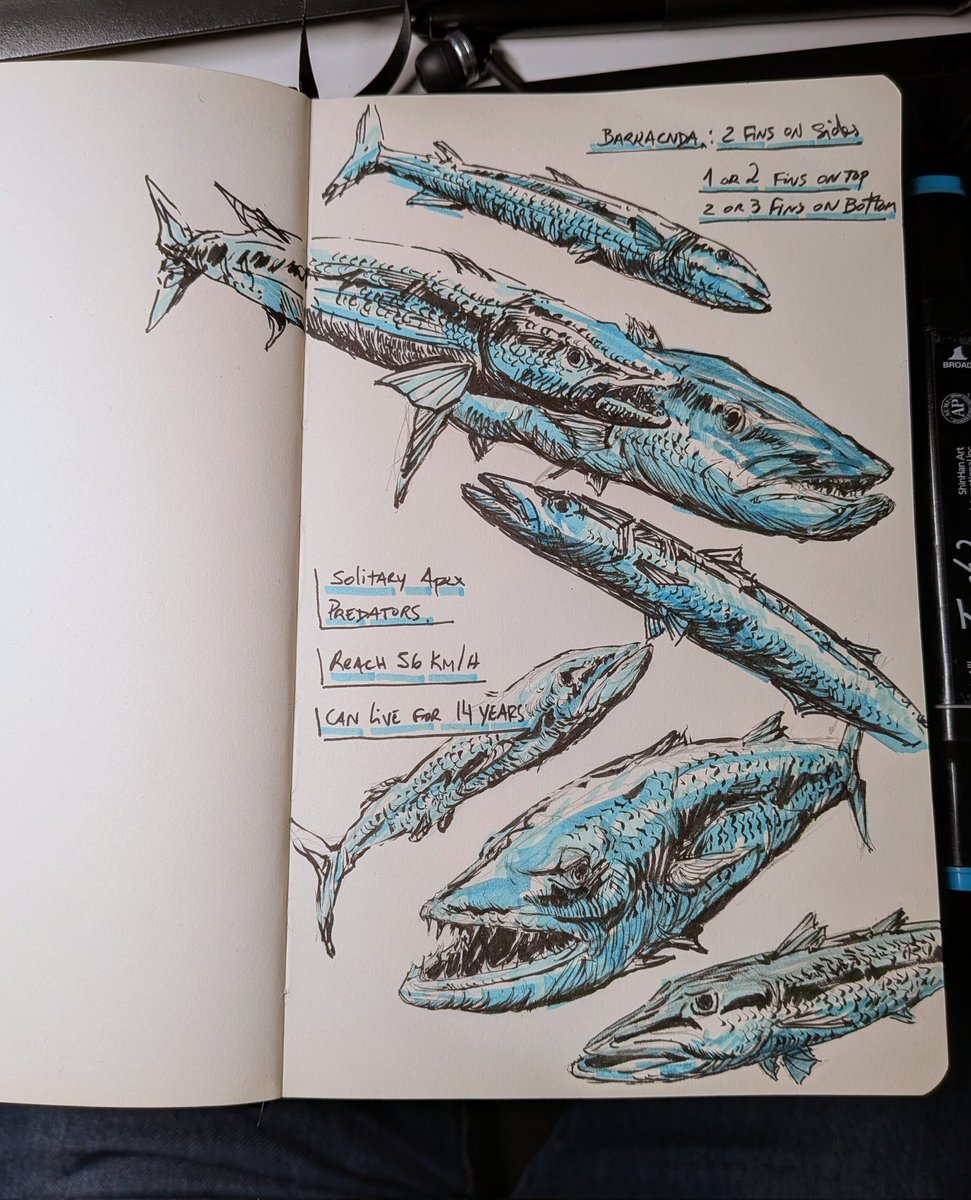 BARRACNDA.: 2 FINS ON Sides
1 OR 2 FINS ON TOP
2 OR 3 FINS ON BOTTOM
SOLITARY APEX
PREDATORS.
REACH 56 KM/H
CAN LIVE FOR 14 YEARS
BROAD
AP
ShinHan Art